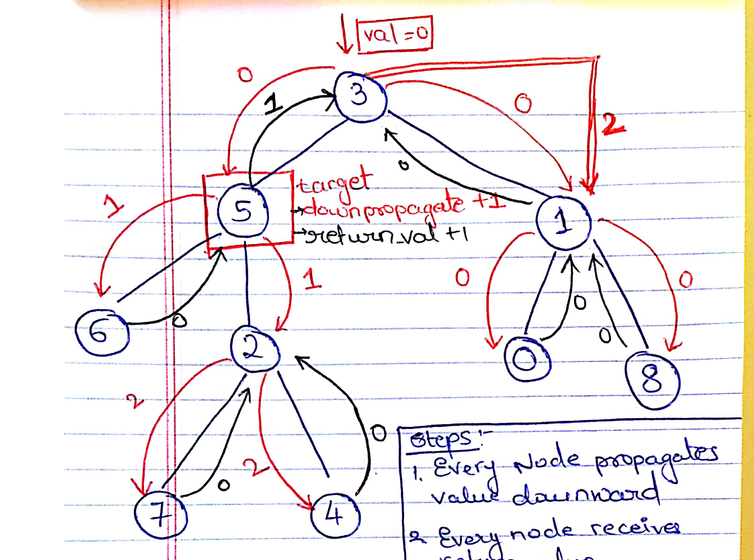 val=0
0
3
1
0
2
0
target
→downpropagate +1
→return val +1
5
1
1
1
0
0
6
0
2
0
0
0
8
2
2
0
0
7
4
Steps:-
1. Every Node propagates
value downward
2 Every node receives